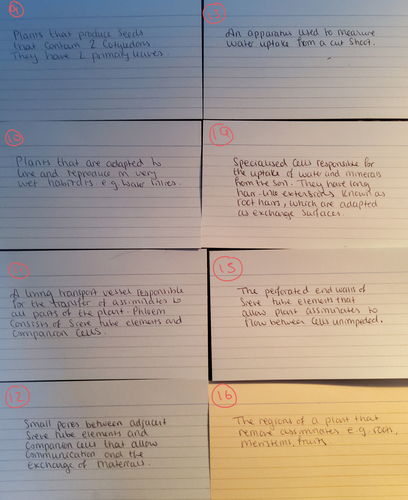 9
Plants that produce seeds
that contain 2 cotyledons
They have 2 primary leaves.
13
An apparatus used to measure
water uptake from a cut shoot.
10
Plants that are adapted to
live and reproduce in very
wet habitats e.g water lilies.
14
Specialised cells responsible for
the uptake of water and minerals
from the soil. They have long
hair-like extensions known as
root hairs, which are adapted
as exchange surfaces
A living transport vessel responsible
for the transfer of assimilates to
all parts of the plant. Phloem
consists of sieve tube elements and
companion cells.
15
The perforated end walls of
sieve tube elements that
allow plant assimilates to
flow between cells unimpeded.
12
Small pores between adjacent
sieve tube elements and
companion cells that allow
communication and the
exchange of materials.
16
The regions of a plant that
remove assimilates e.g. roots,
meristems, fruits